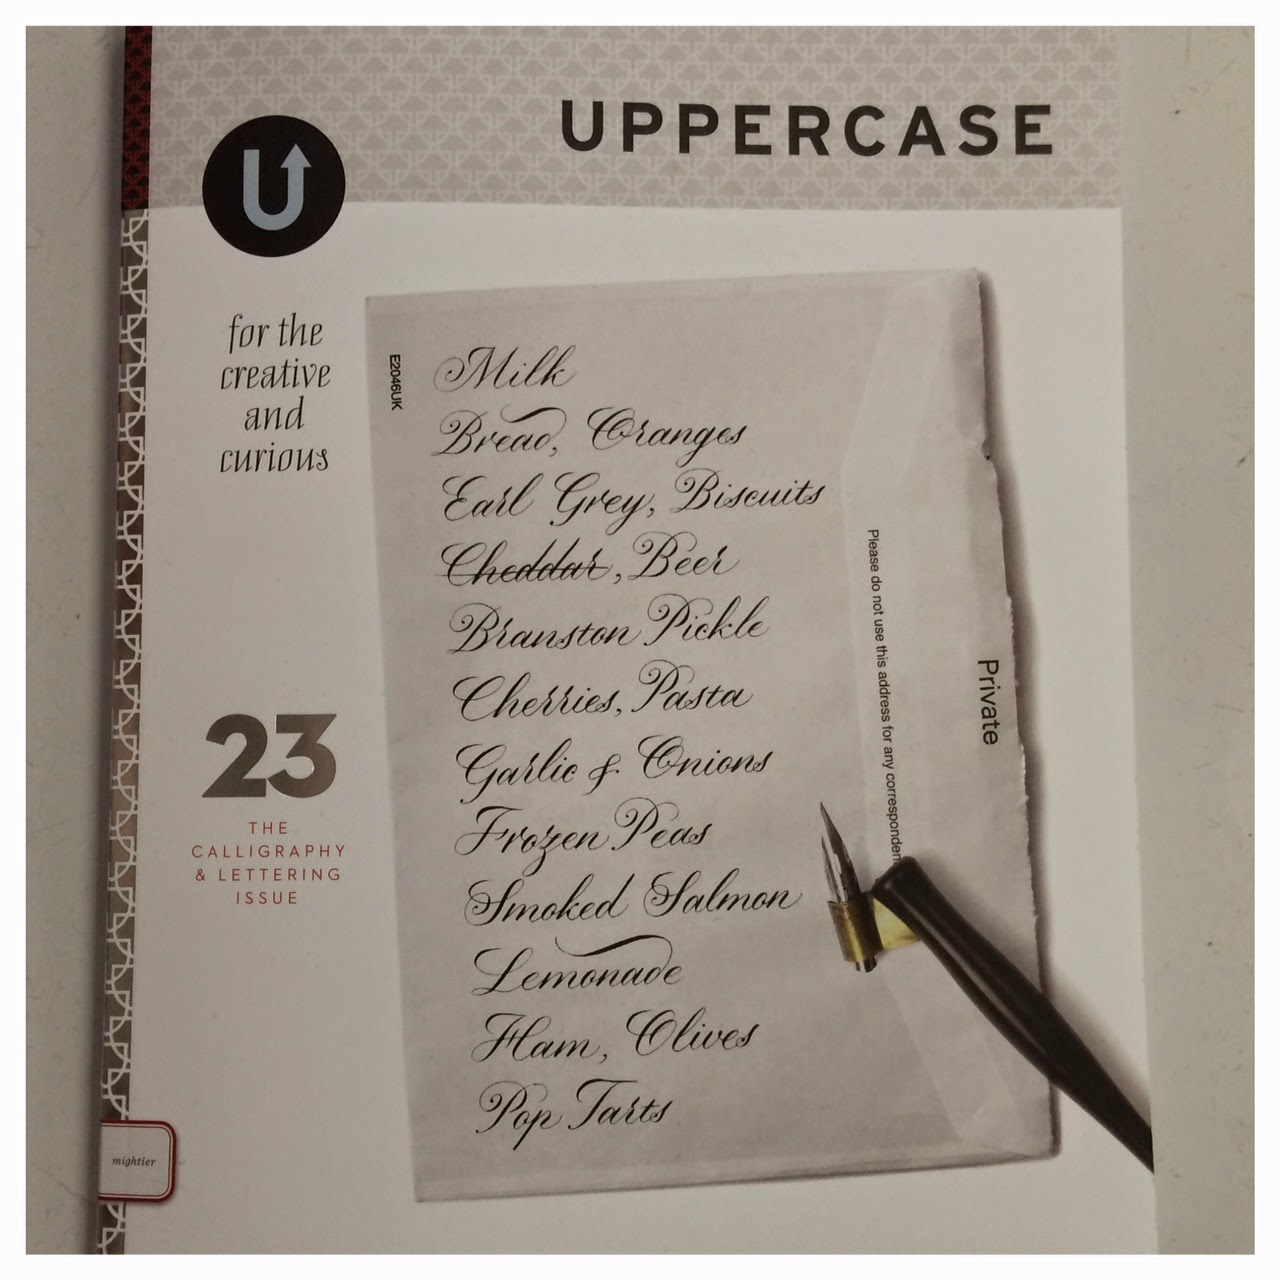 UPPERCASE
U
for the
creative
and
curious
E2046UK
Milk
Bread, Oranges
Earl Grey, Biscuits
Cheddar, Beer
Branston Pickle
Cherries, Pasta
Garlic & Onions
Frozen Peas
Smoked Salmon
Lemonade
Ham, Olives
Pop Tarts
Please do not use this address for any corresponden
Private
23
THE
CALLIGRAPHY
& LETTERING
ISSUE
mightier